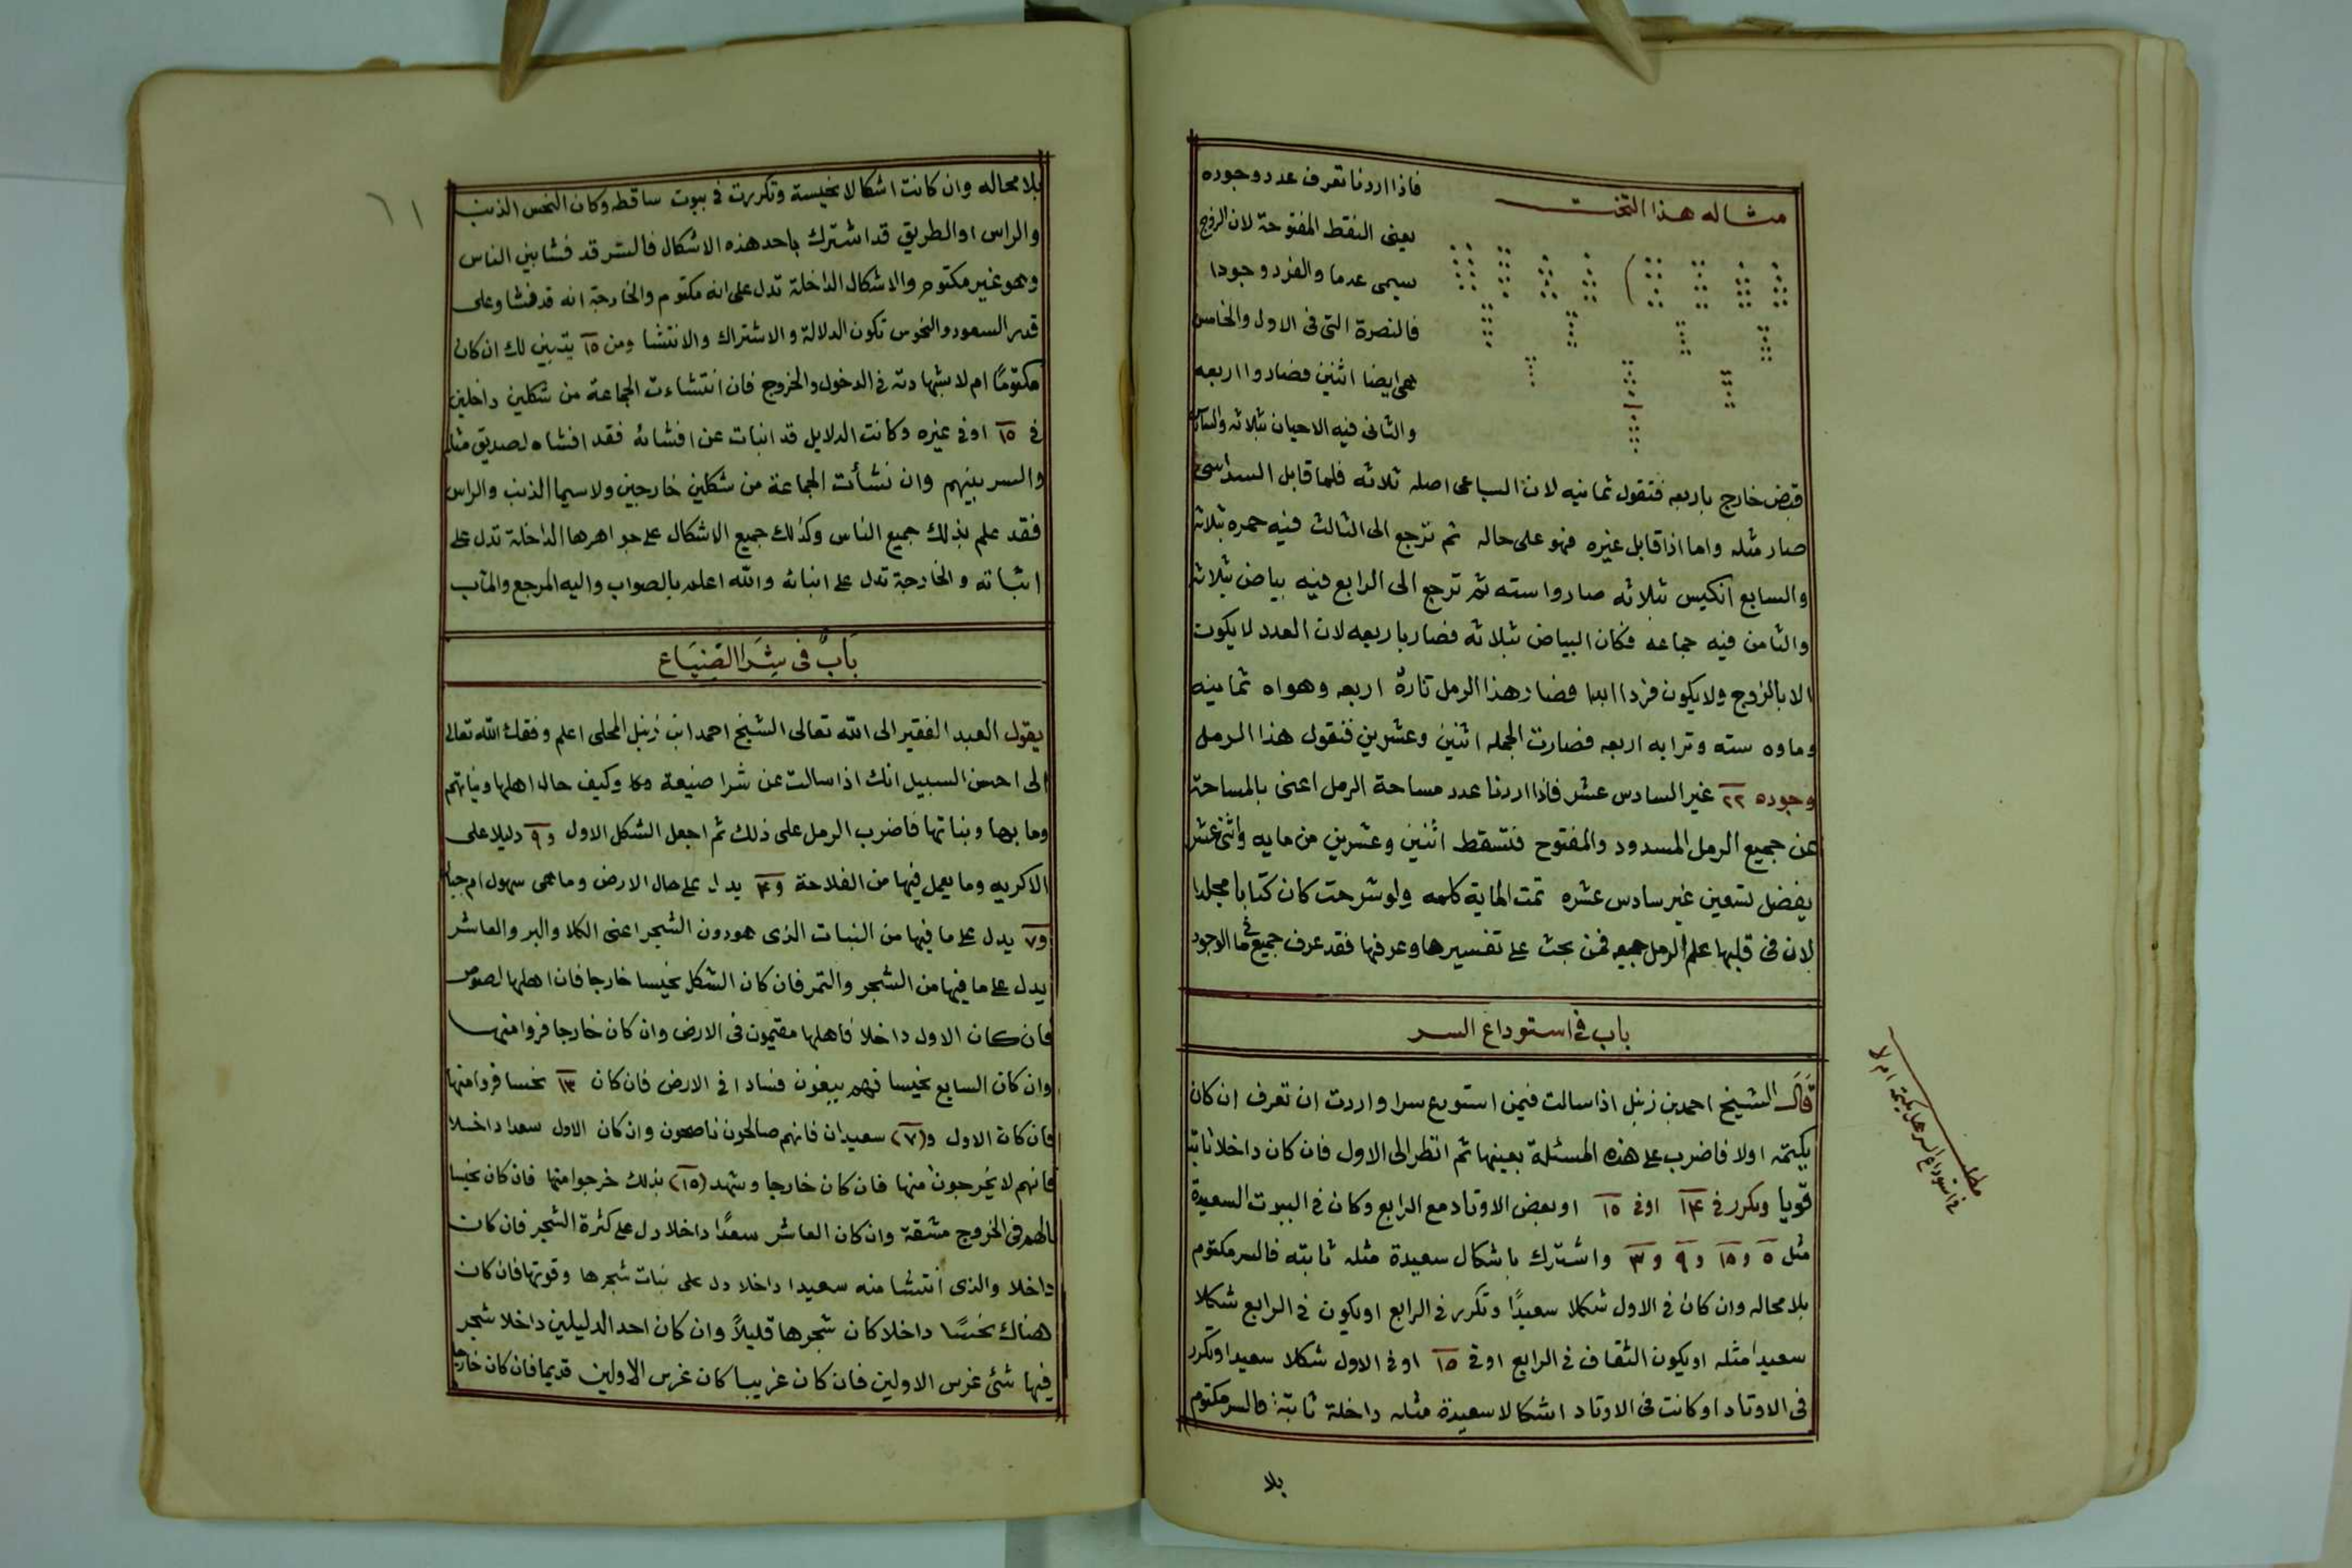 مثاله هذا التخت
فاذا اردنا تعرف عدد وجوده
يعنى النقط المفتوحة لان الزوج
يسمى عدما والفرد وجودا
فالنصرة التى فى الاول والخامس
هى ايضا اثنين فصاروا اربعه
والثانى فيه الاحيان ثلاثه
قبض خارج باربعه فتقول ثمانيه لان السباعى اصله ثلاثه فلما قابل السداسى
صار مثله واما اذا قابل غيره فهو على حاله ثم نرجع الى الثالث فيه حمره ثلاثه
والسابع انكيس ثلاثه صاروا سته ثم ترجع الى الرابع فيه بياض ثلاثه
والثامن فيه جماعه فكان البياض ثلاثه فصار باربعه لان العدد لا يكون
الا بالزوج ولا يكون فردا ابدا فصار هذا الرمل تارة اربعه وهواه ثمانيه
وماوه سته وترابه اربعه فصارت الجمله اثنين وعشرين فنقول هذا الرمل
وجوده ٢٢ غير السادس عشر فاذا اردنا عدد مساحة الرمل اعنى بالمساحة
عن جميع الرمل المسدود والمفتوح فتسقط اثنين وعشرين من مايه واثنى عشر
يفضل تسعين غير سادس عشره تمت الماية كلمه ولو شرحت كان كتابا مجلدا
لان فى قلبها علم الرمل جميعه فمن بحث على تفسيرها وعرفها فقد عرف جميع ما فى الوجود
باب فى استوداع السر
قال الشيخ احمد بن زنبل اذا سالت فيمن استودع سرا واردت ان تعرف ان كان
يكتمه اولا فاضرب على هذه المسئلة بعينها ثم انظر الى الاول فان كان داخلا ثابتا
قويا وتكرر فى ١٤ او فى ١٥ او بعض الاوتاد مع الرابع وكان فى البيوت السعيدة
مثل ٥ و ١٥ و ٩ و ٣ واشترك باشكال سعيدة مثله ثابته فالسر مكتوم
بلا محاله وان كان فى الاول شكلا سعيدًا وتكرر فى الرابع او يكون فى الرابع شكلا
سعيدا مثله او يكون الثقاف فى الرابع او فى ١٥ او فى الاول شكلا سعيدا وتكرر
فى الاوتاد او كانت فى الاوتاد اشكالا سعيدة مثله داخلة ثابتة فالسر مكتوم
بلا
مطلب
فى استوداع السر هل يكتمه ام لا
٦١
بلا محاله وان كانت اشكالا نحيسة وتكررت فى بيوت ساقطه وكان النحس الذنب
والراس او الطريق قد اشترك باحد هذه الاشكال فالسر قد فشا بين الناس
وهو غير مكتوم والاشكال الداخلة تدل على انه مكتوم والخارجة انه قد فشا وعلى
قدر السعود والنحوس تكون الدلالة والاشتراك والانتشا ومن ١٥ يتبين لك ان كان
مكتومًا ام لا بشهادته فى الدخول والخروج فان انتشاءت الجماعة من شكلين داخلين
فى ١٥ او فى غيره وكانت الدلايل قد انبات عن افشائه فقد افشاه لصديق مثله
والسر بينهم وان نشأت الجماعة من شكلين خارجين ولا سيما الذنب والراس
فقد علم بذلك جميع الناس وكذلك جميع الاشكال على جواهرها الداخلة تدل على
اثباته والخارجة تدل على انبائه والله اعلم بالصواب واليه المرجع والمآب
بَابٌ فى شِرَا الضِيَاع
يقول العبد الفقير الى الله تعالى الشيخ احمد ابن زنبل المحلى اعلم وفقك الله تعالى
الى احسن السبيل انك اذا سالت عن شرا ضيعة وكيف حال اهلها ونياتهم
وما بها ونباتها فاضرب الرمل على ذلك ثم اجعل الشكل الاول و ٩ دليلا على
الاكريه وما يعمل فيها من الفلاحة و ٤ يدل على حال الارض وما هى سهول ام جبال
و ٧ يدل على ما فيها من النبات الذى هو دون الشجر اعنى الكلا والبر والعاشر
يدل على ما فيها من الشجر والثمر فان كان الشكل نحيسا خارجا فان اهلها لصوص
فان كان الاول داخلا فاهلها مقيمون فى الارض وان كان خارجا فروا منها
وان كان السابع نحيسا فهم يبغون فسادا فى الارض فان كان ١٣ نحسا فروا منها
فان كان الاول و (٧) سعيدان فانهم صالحون ناصحون وان كان الاول سعدا داخلا
فانهم لا يخرجون منها فان كان خارجا وشهد (١٥) بذلك خرجوا منها فان كان نحيسا
نالهم فى الخروج مشقة وان كان العاشر سعدًا داخلا دل على كثرة الشجر فان كان
داخلا والذى انتشا منه سعيدا داخلا دل على نبات شجرها وقوتها فان كان
هناك نحسًا داخلا كان شجرها قليلاً وان كان احد الدليلين داخلا شجر
فيها شئ غرس الاولين فان كان غريبا كان غرس الاولين قديما فان كان خارجا